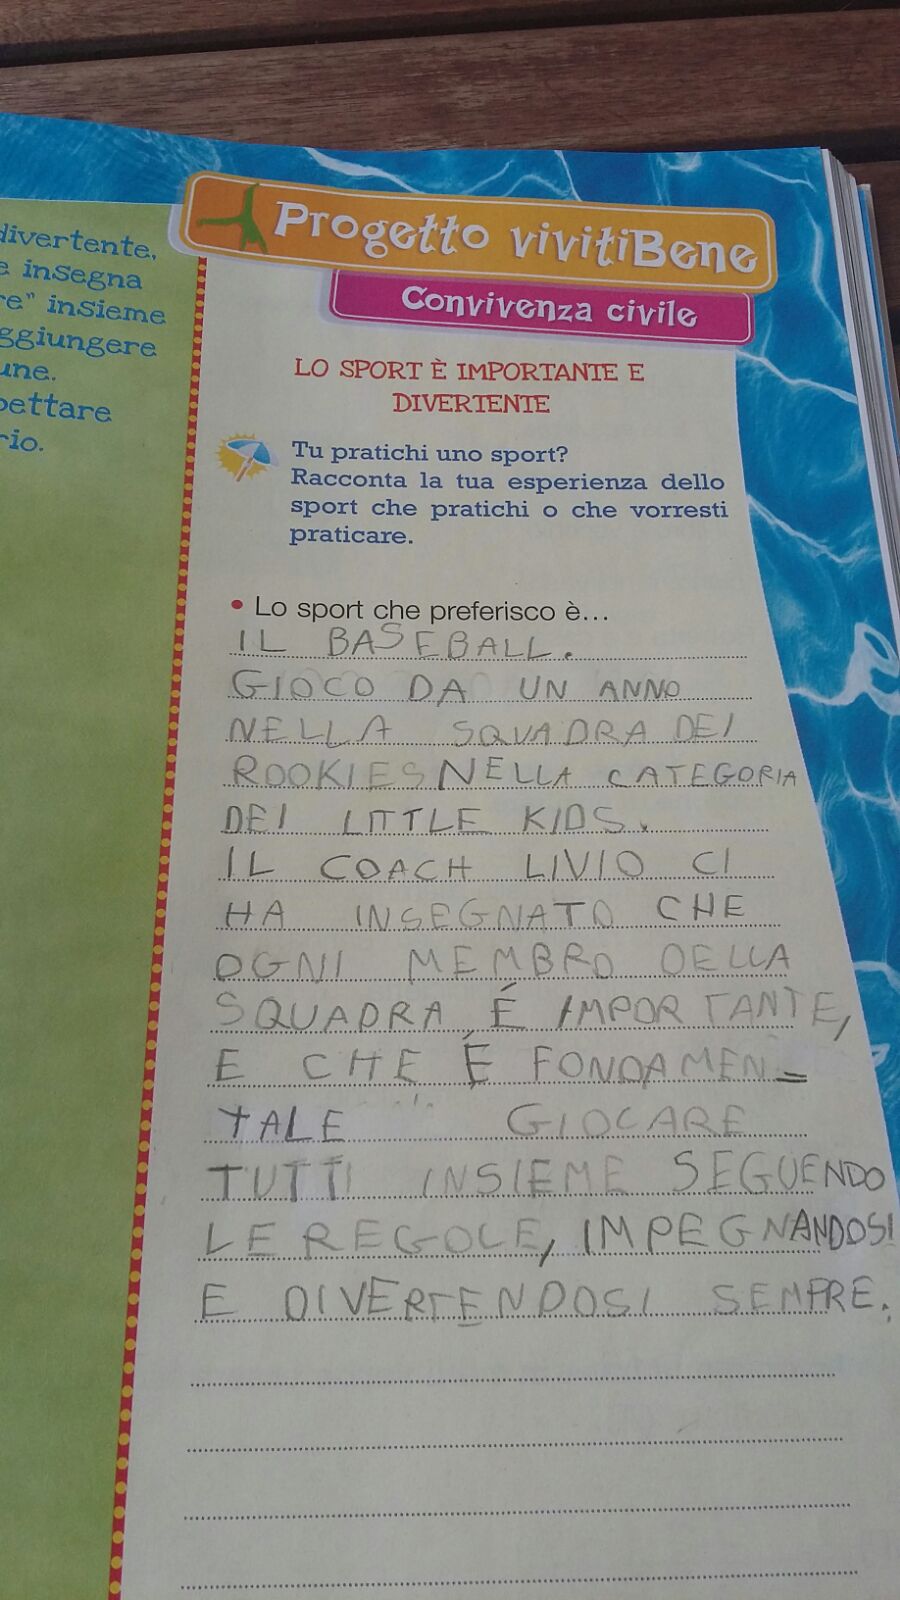 divertente,
e insegna
re" insieme
ggiungere
une.
pettare
rio.
Progetto vivitiBene
Convivenza civile
LO SPORT È IMPORTANTE E
DIVERTENTE
Tu pratichi uno sport?
Racconta la tua esperienza dello
sport che pratichi o che vorresti
praticare.
• Lo sport che preferisco è...
IL BASEBALL.
GIOCO DA UN ANNO
NELLA SQUADRA DEI
ROOKIES NELLA CATEGORIA
DEI LITTLE KIDS.
IL COACH LIVIO CI
HA INSEGNATO CHE
OGNI MEMBRO DELLA
SQUADRA É IMPORTANTE,
E CHE É FONDAMEN=
TALE GIOCARE
TUTTI INSIEME SEGUENDO
LE REGOLE, IMPEGNANDOSI
E DIVERTENDOSI SEMPRE.